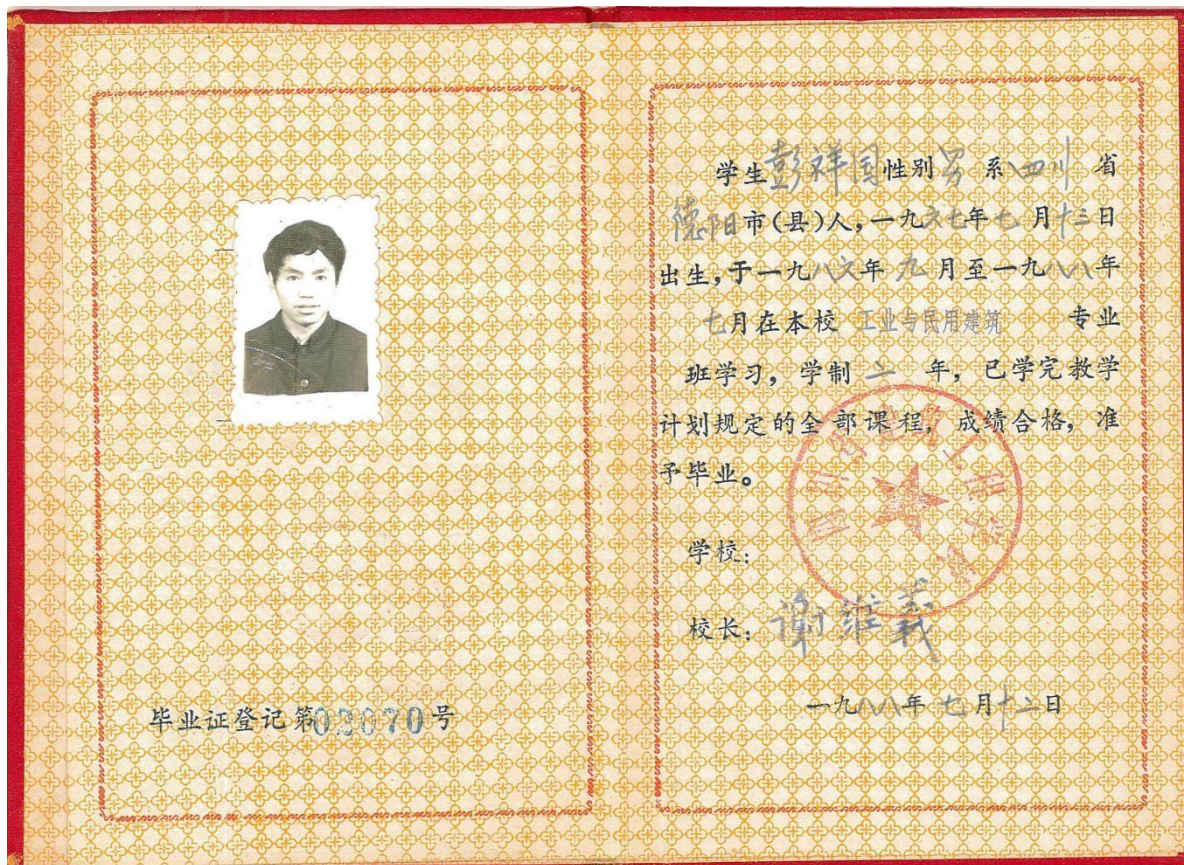 毕业证登记第02070号
学生彭祥国性别男系四川省
德阳市(县)人,一九六七年七月十三日
出生,于一九八六年九月至一九八八年
七月在本校 工业与民用建筑 专业
班学习,学制二年,已学完教学
计划规定的全部课程,成绩合格,准
予毕业。
四川省建筑工程学校
学校:
校长:谢维義
一九八八年七月十二日